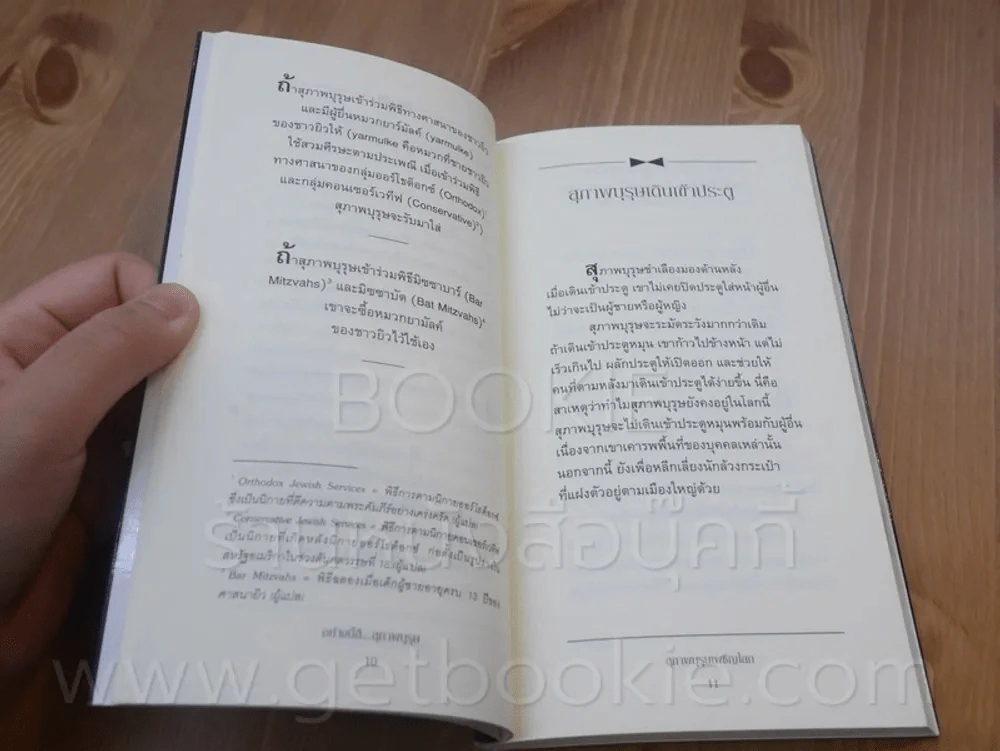 ถ้าสุภาพบุรุษเข้าร่วมพิธีทางศาสนาของชาวยิว
และมีผู้ยื่นหมวกยาร์มัลค์ (yarmulke)
ของชาวยิวให้ (yarmulke คือหมวกที่ชายชาวยิว
ใช้สวมศีรษะตามประเพณี เมื่อเข้าร่วมพิธี
ทางศาสนาของกลุ่มออร์โธด็อกซ์ (Orthodox)¹
และกลุ่มคอนเซอร์เวทีฟ (Conservative)²)
สุภาพบุรุษจะรับมาใส่
ถ้าสุภาพบุรุษเข้าร่วมพิธีมิซซาบาร์ (Bar
Mitzvahs)³ และมิซซามัต (Bat Mitzvahs)⁴
เขาจะซื้อหมวกยามัลค์
ของชาวยิวไว้ใช้เอง
¹ Orthodox Jewish Services = พิธีการตามนิกายออร์โธด็อกซ์
ซึ่งเป็นนิกายที่ตีความตามพระคัมภีร์อย่างเคร่งครัด (ผู้แปล)
² Conservative Jewish Services = พิธีการตามนิกายคอนเซอร์เวทีฟ
เป็นนิกายที่เกิดหลังนิกายออร์โธด็อกซ์ ก่อตั้งเป็นรูปร่างใน
สหรัฐอเมริกาในช่วงต้นศตวรรษที่ (ผู้แปล)
³ Bar Mitzvahs = พิธีฉลองเมื่อเด็กผู้ชายอายุครบ 13 ปีของ
ศาสนายิว (ผู้แปล)
สุภาพบุรุษ
10
สุภาพบุรุษเดินเข้าประตู
สุภาพบุรุษชำเลืองมองด้านหลัง
เมื่อเดินเข้าประตู เขาไม่เคยปิดประตูใส่หน้าผู้อื่น
ไม่ว่าจะเป็นผู้ชายหรือผู้หญิง
สุภาพบุรุษจะระมัดระวังมากกว่าเดิม
ถ้าเดินเข้าประตูหมุน เขาก้าวไปข้างหน้า แต่ไม่
เร็วเกินไป ผลักประตูให้เปิดออก และช่วยให้
คนที่ตามหลังมาเดินเข้าประตูได้ง่ายขึ้น นี่คือ
สาเหตุว่าทำไมสุภาพบุรุษยังคงอยู่ในโลกนี้
สุภาพบุรุษจะไม่เดินเข้าประตูหมุนพร้อมกับผู้อื่น
เนื่องจากเขาเคารพพื้นที่ของบุคคลเหล่านั้น
นอกจากนี้ ยังเพื่อหลีกเลี่ยงนักล้วงกระเป๋า
ที่แฝงตัวอยู่ตามเมืองใหญ่ด้วย
สุภาพบุรุษเผชิญโลก
11
BOOKIE
ร้านหนังสือบุ๊คกี้
www.getbookie.com